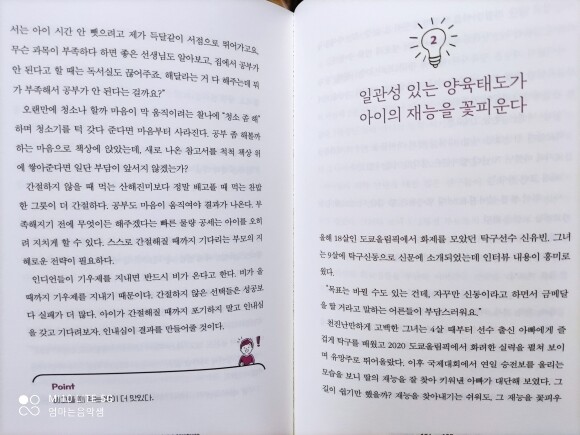 서는 아이 시간 안 뺏으려고 제가 득달같이 서점으로 뛰어가고요.
무슨 과목이 부족하다 하면 좋은 선생님도 알아보고, 집에서 공부가
안 된다고 할 때는 독서실도 끊어주죠. 해달라는 거 다 해주는데 뭐
가 부족해서 공부가 안 된다는 걸까요?"
오랜만에 청소나 할까 마음이 막 움직이려는 찰나에 "청소 좀 해"
하며 청소기를 턱 갖다 준다면 마음부터 사라진다. 공부 좀 해볼까
하는 마음으로 책상에 앉았는데, 새로 나온 참고서를 척척 책상 위
에 쌓아준다면 일단 부담이 앞서지 않겠는가?
간절하지 않을 때 먹는 산해진미보다 정말 배고플 때 먹는 찬밥
한 그릇이 더 간절하다. 공부도 마음이 움직여야 결과가 나온다. 부
족해지기 전에 무엇이든 해주겠다는 빠른 물량 공세는 아이를 오히
려 지치게 할 수 있다. 스스로 간절해질 때까지 기다리는 부모의 지
혜로운 전략이 필요하다.
인디언들이 기우제를 지내면 반드시 비가 온다고 한다. 비가 올
때까지 기우제를 지내기 때문이다. 간절하지 않은 선택들은 성공보
다 실패가 더 많다. 아이가 간절해질 때까지 포기하지 말고 인내심
을 갖고 기다려보자. 인내심이 결과를 만들어줄 것이다.
Point
더 맛있다.
엄마는음악샘
2
일관성 있는 양육태도가
아이의 재능을 꽃피운다
올해 18살인 도쿄올림픽에서 화제를 모았던 탁구선수 신유빈, 그녀
는 9살에 탁구신동으로 신문에 소개되었는데 인터뷰 내용이 흥미로
웠다.
"목표는 바뀔 수도 있는 건데, 자꾸만 신동이라고 하면서 금메달
을 딸 거라고 말하는 어른들이 부담스러워요."
천진난만하게 고백한 그녀는 4살 때부터 선수 출신 아빠에게 즐
겁게 탁구를 배웠고 2020 도쿄올림픽에서 화려한 실력을 펼쳐 보이
며 유망주로 뛰어올랐다. 이후 국제대회에서 연일 승전보를 올리는
모습을 보니 딸의 재능을 잘 찾아 키워낸 아빠가 대단해 보였다. 그
길이 쉽기만 했을까? 재능을 찾아내기는 쉬워도, 그 재능을 꽃피우